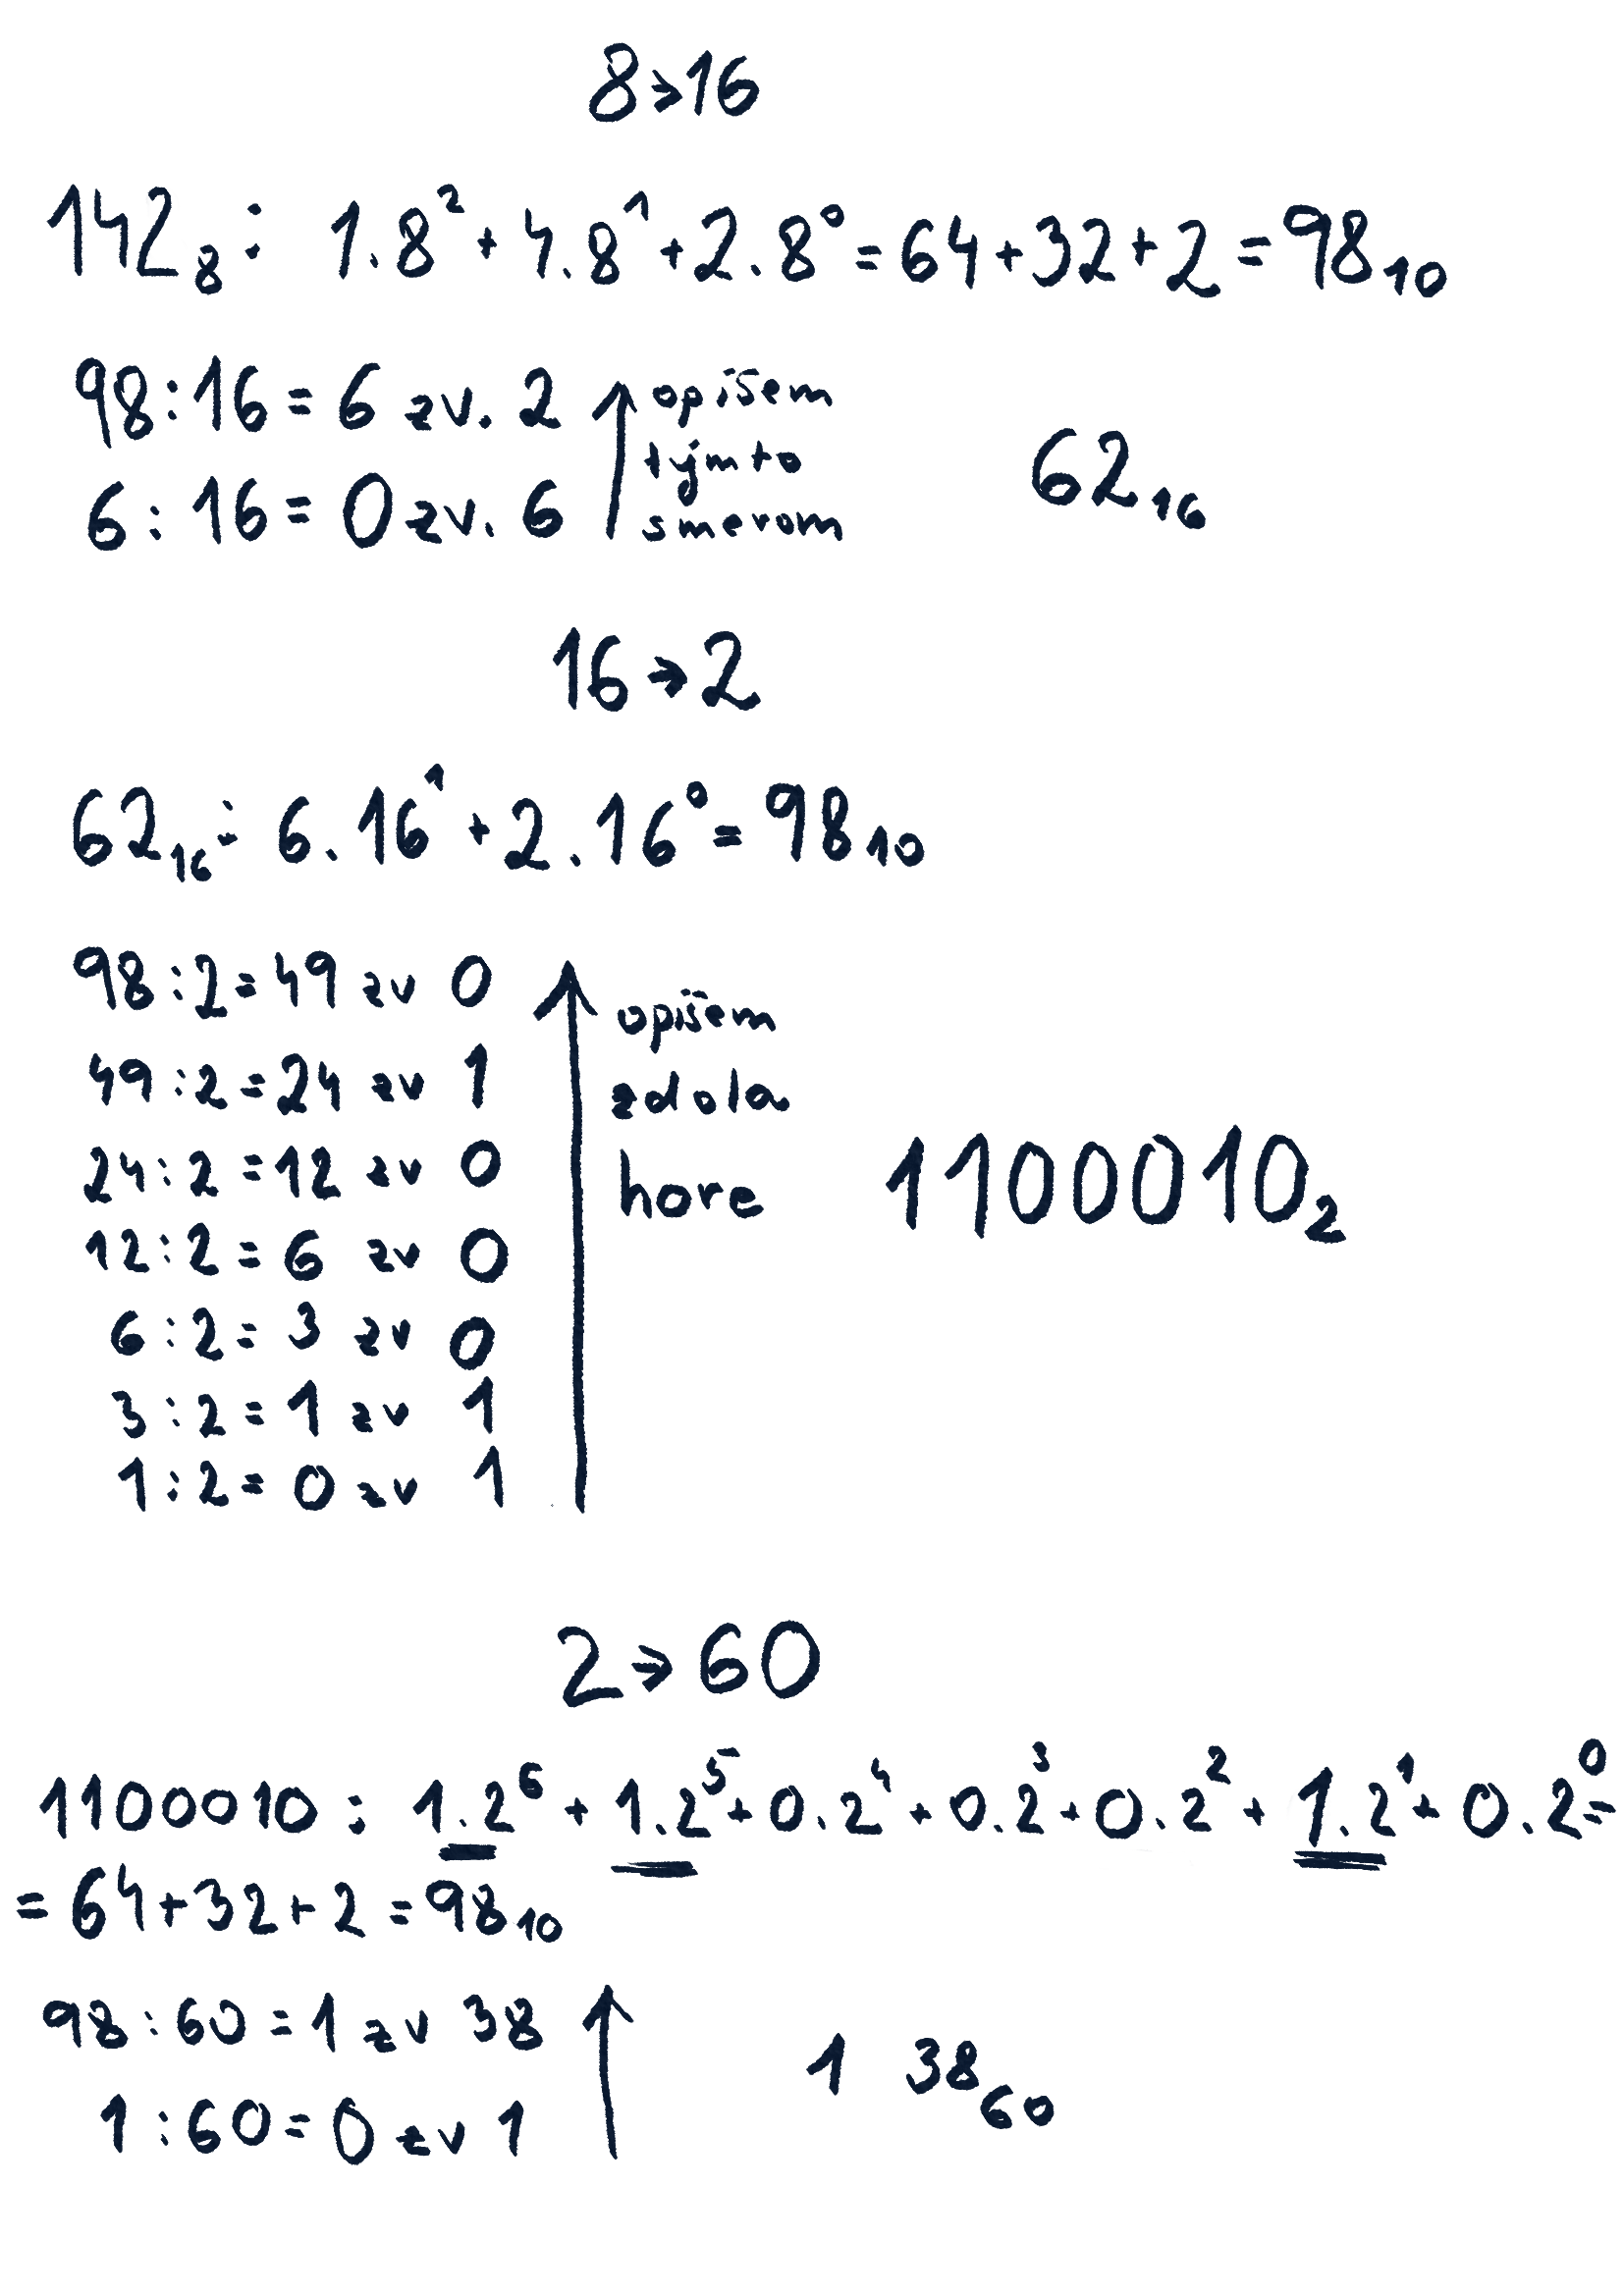 8→16
142₈: 1.8²+4.8¹+2.8⁰=64+32+2=98₁₀
98:16=6 zv. 2 opíšem
týmto
6:16=0 zv. 6 smerom
62₁₆
16→2
62₁₆: 6.16¹+2.16⁰=98₁₀
98:2=49 zv 0
49:2=24 zv 1
24:2=12 zv 0
12:2=6 zv 0
6:2=3 zv 0
3:2=1 zv 1
1:2=0 zv 1
opíšem
zdola
hore
1100010₂
2→60
1100010: 1.2⁶+1.2⁵+0.2⁴+0.2³+0.2²+1.2¹+0.2⁰=
=64+32+2=98₁₀
98:60=1 zv 38
1:60=0 zv 1
1 38₆₀